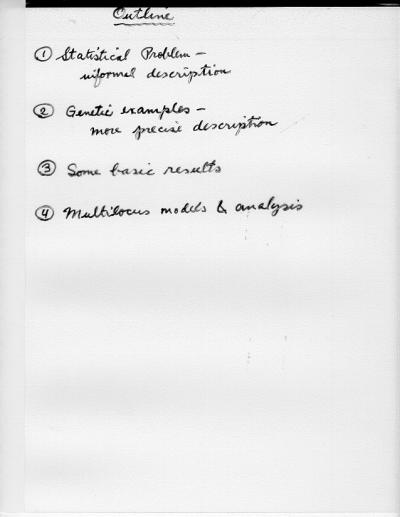 Outline
① Statistical Problem –
informal description
② Genetic examples –
more precise description
③ Some basic results
④ Multilocus models & analysis